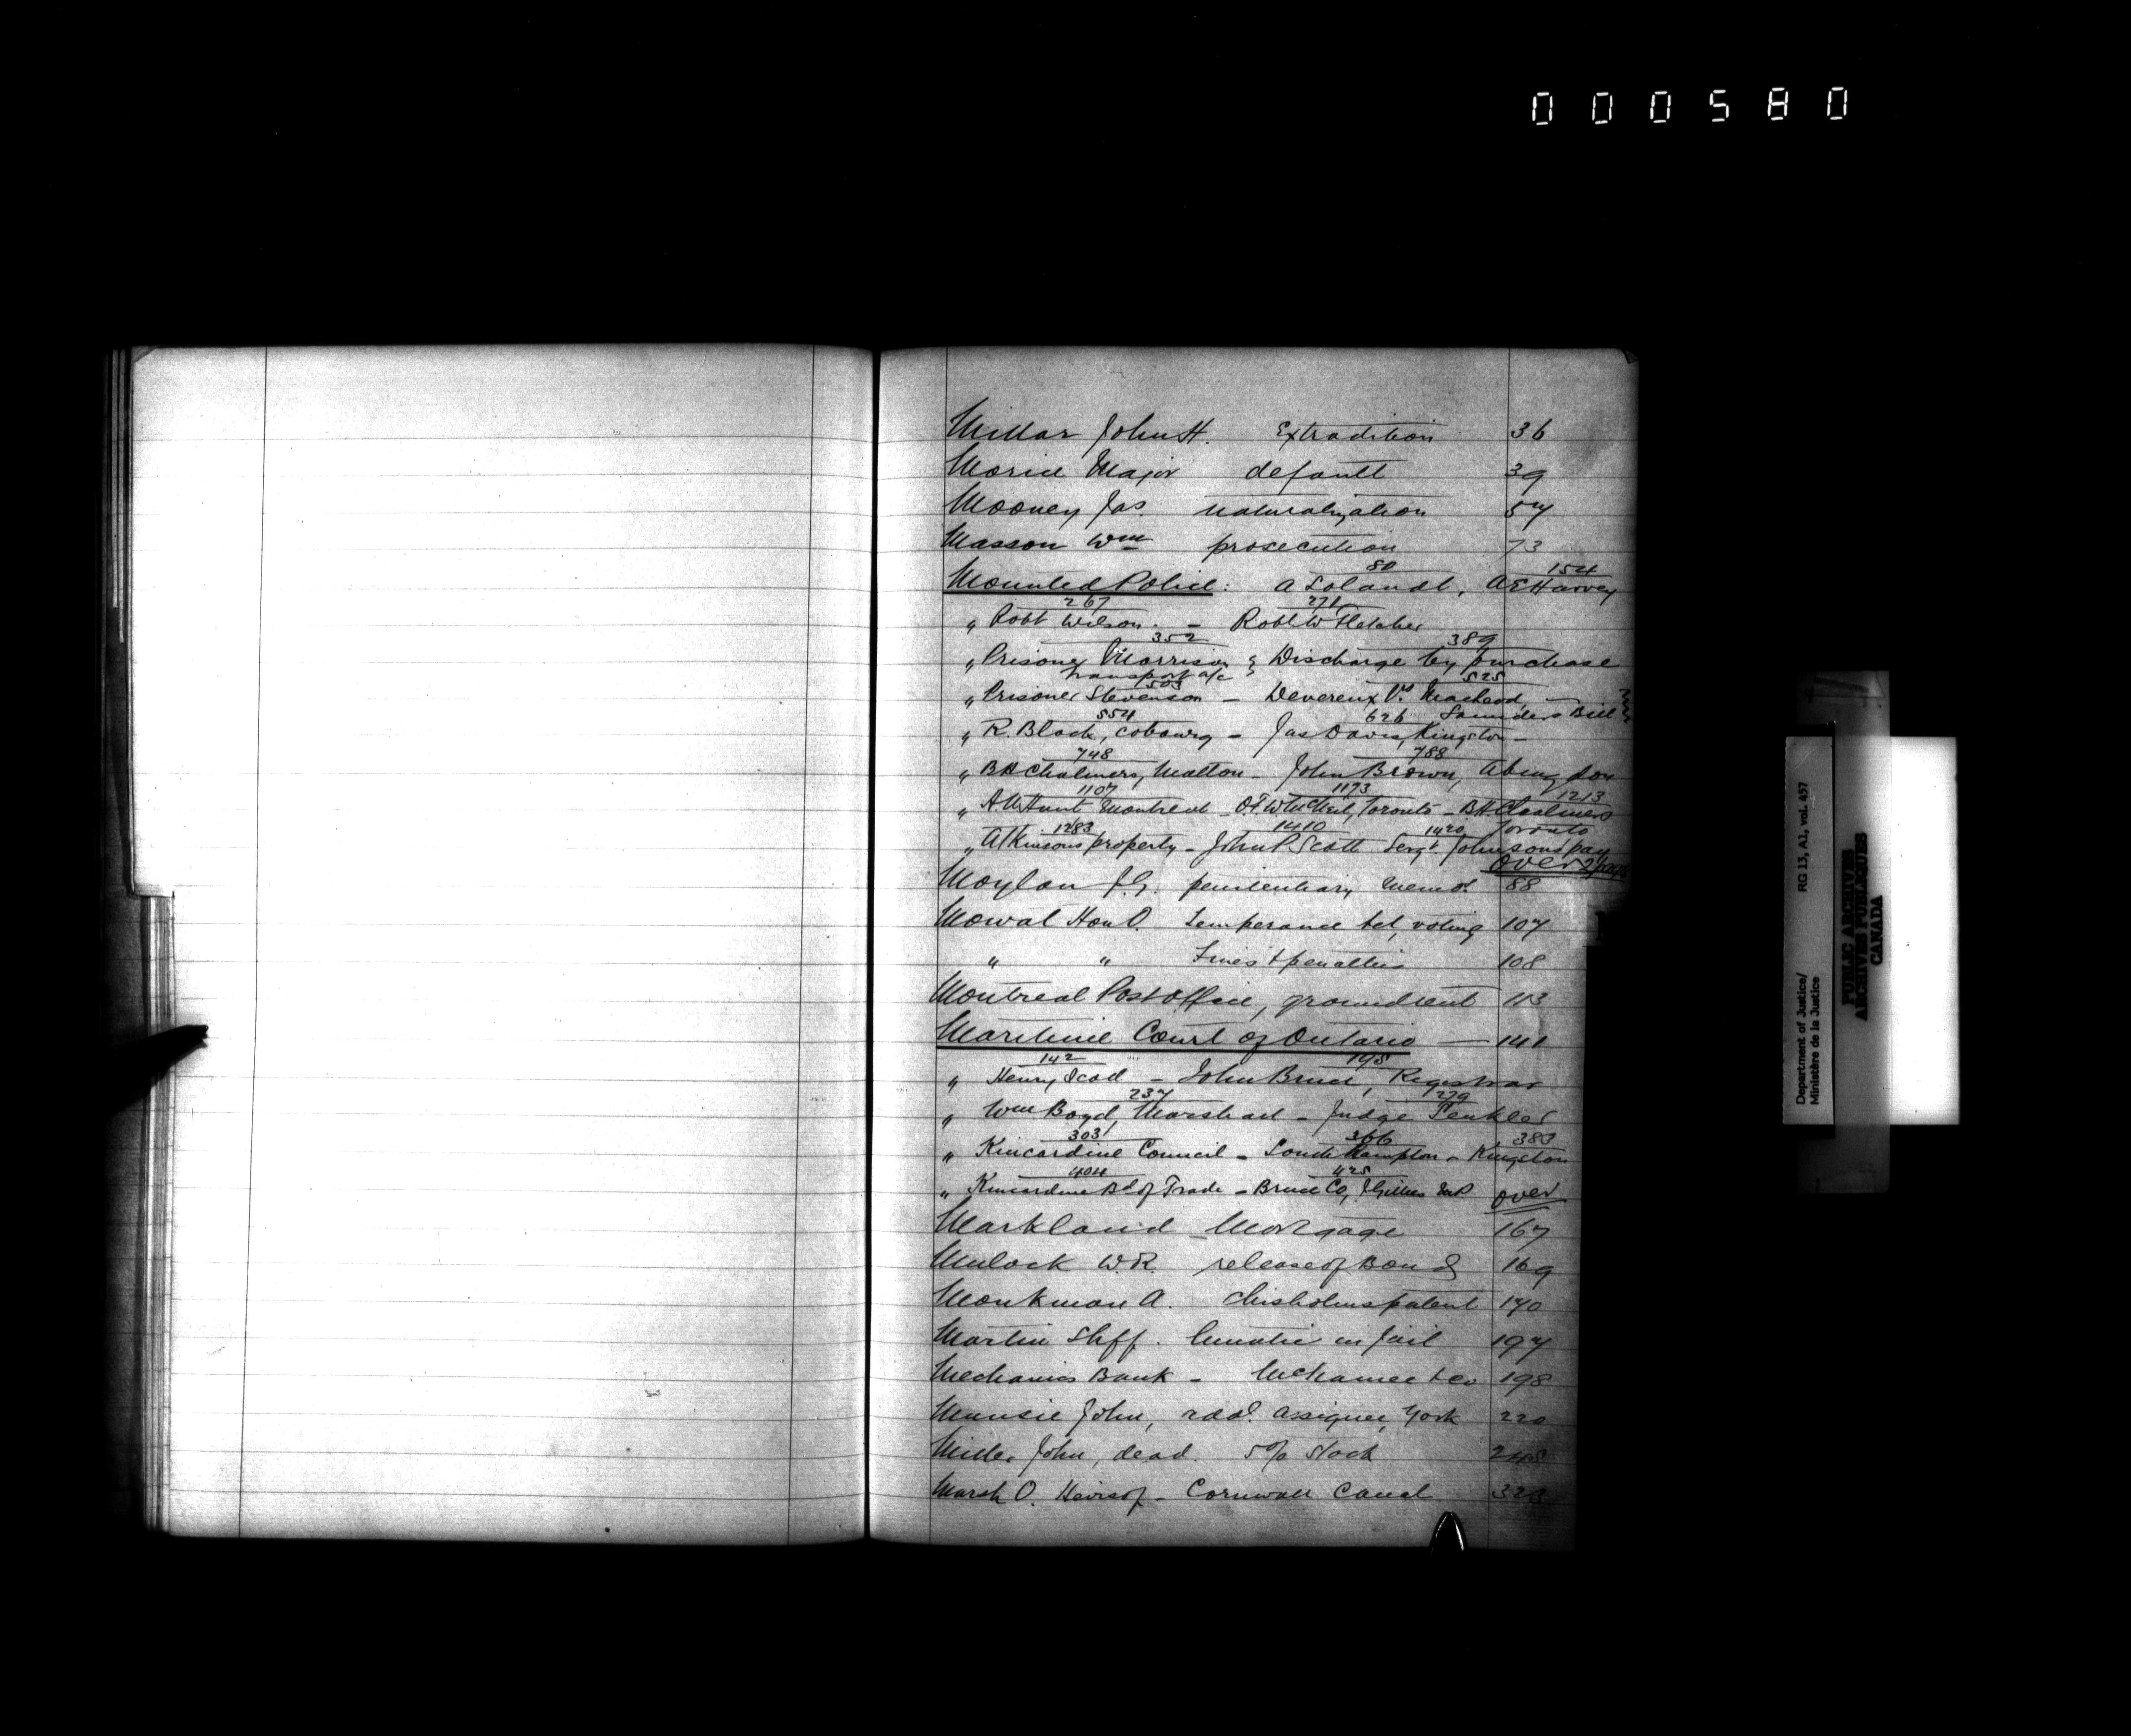 000580
Millar John H. Extradition 36
Morin Major default 39
Mooney Jas. naturalization 57
Masson Wm prosecution 73
80 154
Mounted Police: A Solandt, A E Harvey
267 271
" Robt Wilson. - Robt W Fletcher
352 389
" Prisoner Morrison & Discharge by purchase
transport a/c
503 525
" Prisoner Stevenson - Devereux Vs Macleod,
554 626 Saunders Bill
" R. Black, Cobourg - Jas Davis, Kingston -
748 788
" B H Chalmers, Malton - John Brown, Abingdon
1107 1173 1213
" Hunt Montreal - Toronto - B.H. Chalmers
1283 1410 1420 Toronto
" Atkinsons property - John P Scott Sergt Johnsons pay
over 2 pages
Moylan J.G. penitentiary memo. 88
Mowat Hon O. Temperance Act, voting 107
" " Fines & penalties 108
Montreal Post Office, ground rent 113
Maritime Court of Ontario — 141
142 145
" Henry - John Bruce, Registrar
237 279
" Wm Boyd, Marshall - Judge
303 366 383
" Kincardine Council - Southampton - Kingston
404 425
" Kincardine Bd of Trade - Bruce Co, J Gillies M.P. over
Markland Mortgage 167
Mulock W.R. release of Bond 169
Monkman A. Chisholms patent 170
Martin Shff. lunatic in jail 197
Mechanics Bank - & Co 198
Munsie John, assignee, York 220
Miller John, dead. 5% Stock 248
Marsh O. Heirs of - Cornwall Canal
Department of Justice/
Ministère de la Justice
RG 13, A1, vol. 457
PUBLIC ARCHIVES
ARCHIVES PUBLIQUES
CANADA